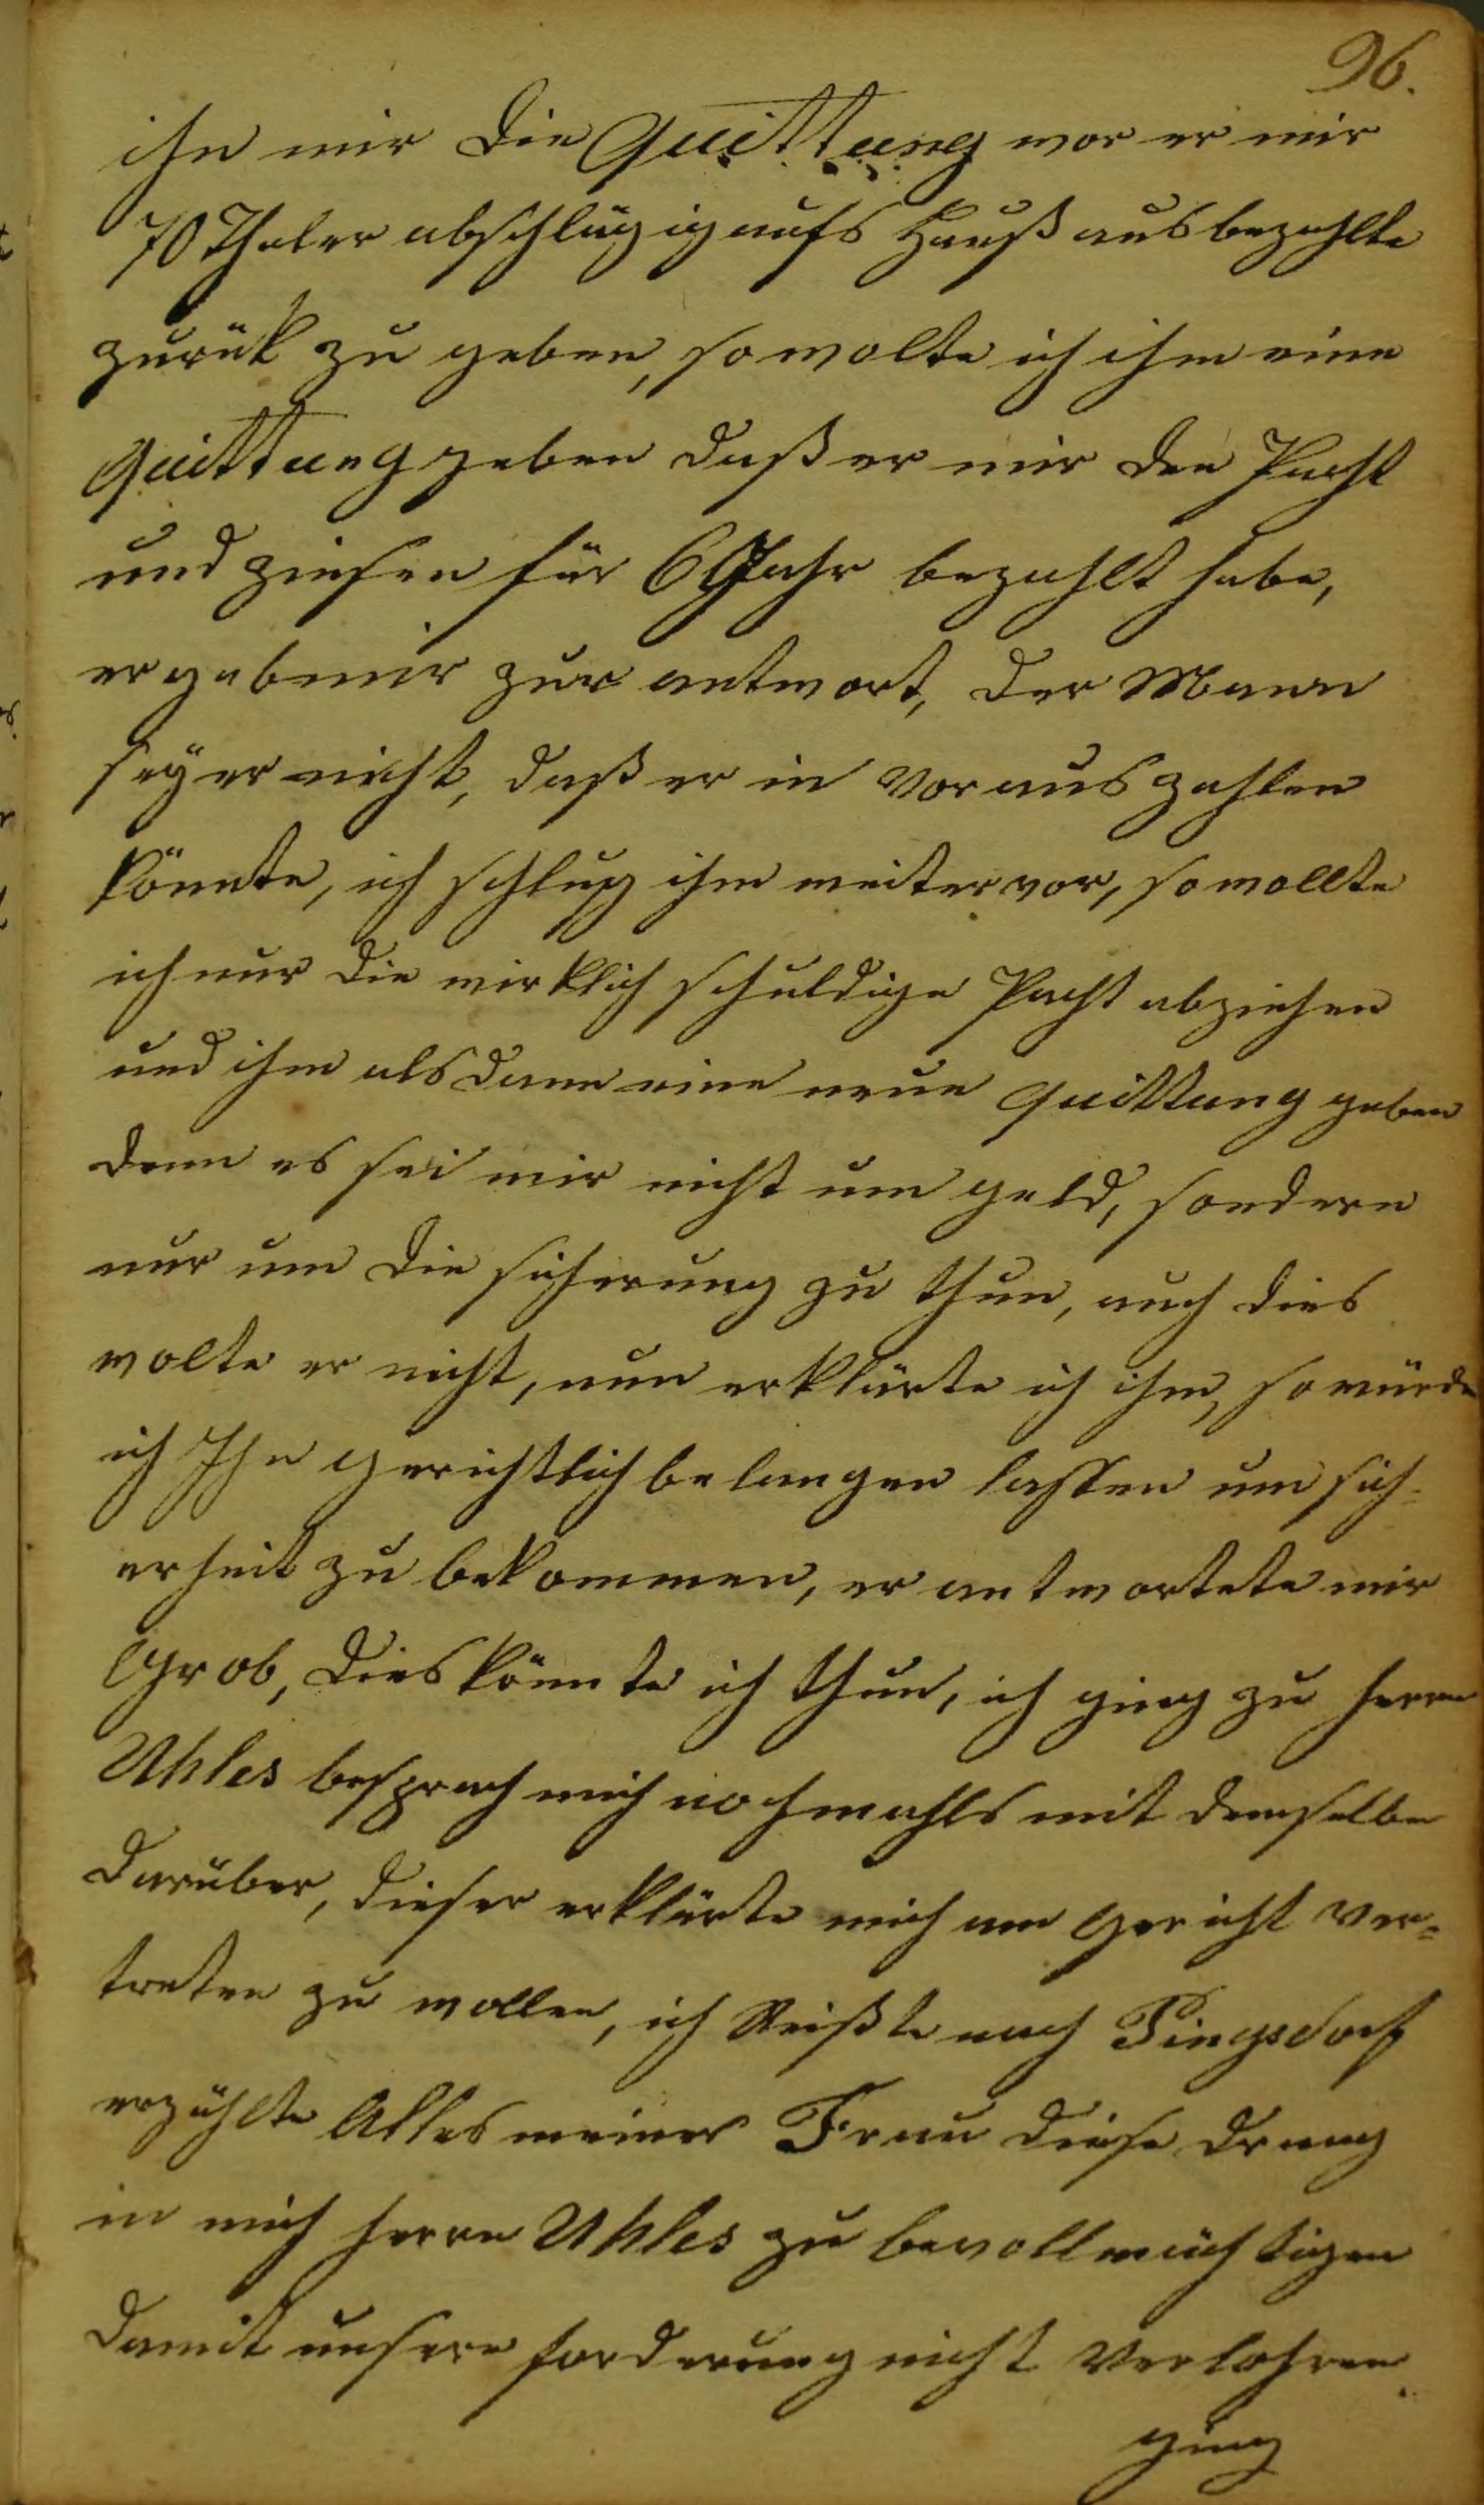 96.
ihn mir die Quittung wor er mir
70 Thaler abschlägig aufs Hauß ausbezahlte
zurük zu geben, so wolte ich ihm eine
Quittung geben daß er mir den Pacht
und zinsen für 6 Jahr bezahlt habe,
er gab mir zur antwort, der Mann
seÿ er nicht, daß er in voraus zahlen
könnte, ich schlug ihm weiter vor, so wollte
ich nur die wirklich schuldige Pacht abziehen
und ihm alsdann eine neue Quittung geben
denn es sei mir nicht um geld, sondern
nur um die sicherung zu thun, auch dies
wolte er nicht, nun erklärte ich ihm, so würde
ich Ihn gerichtlich belangen lassen um sich-
erheit zu bekommen, er antwortete mir
Grob, dies könnte ich thun, ich ging zu herrn
Uhles besprach mich nochmahls mit demselbe
darüber, dieser erklärte mich am Gericht ver=
treten zu wollen, ich Reißte nach Pingsdorf
erzählte Alles meiner Frau diese drang
in mich herrn Uhles zu bevollmächtigen
damit unsere forderung nicht Verlohren
ging